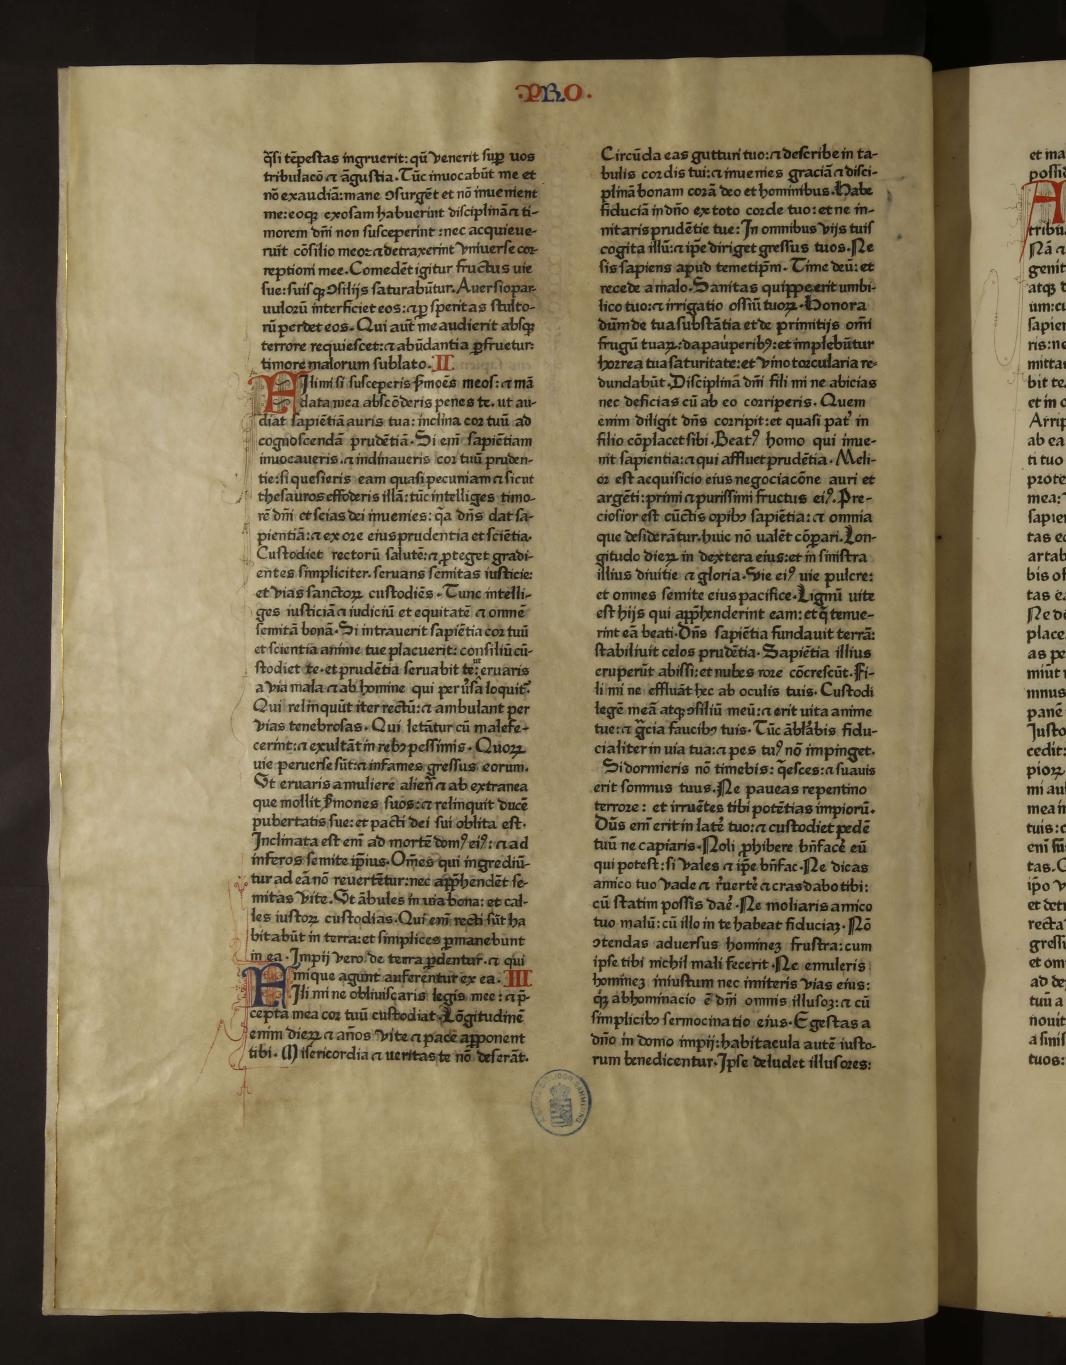 .PRO.
q̄si tēpestas ingruerit: qn̄ venerit sup̱ uos
tribulacō ⁊ āgustia. Tūc inuocabūt me et
nō exaudiā: mane ꝯsurgēt et nō inuenient
me: eoqꝫ exosam habuerint disciplinā ⁊ ti-
morem dn̄i non susceperint: nec acquieue-
rūt cōsilio meo: ⁊ detraxerint vniuerse cor-
reptioni mee. Comedēt igitur fructus uie
sue: suisqꝫ ꝯsilijs saturabūtur. Auersio par-
uulorū interficiet eos: ⁊ ꝓsperitas stulto-
rū perdet eos. Qui aūt me audierit absqꝫ
terrore requiescet: ⁊ abūdantia ꝑfruetur:
timore malorum sublato. II
Fili mi si susceperis s̄mōes meos: ⁊ mā
data mea abscōderis penes te. ut au-
diat sapiētiā auris tua: inclina cor tuū ad
cognoscendā prudētiā. Si em̄ sapiētiam
inuocaueris. ⁊ inclinaueris cor tuū pruden-
tie: si quesieris eam quasi pecuniam ⁊ sicut
thesauros effoderis illā: tūc intelliges timo-
rē dn̄i et sciās dei inuenies: q̄a dn̄s dat sa-
pientiā: ⁊ ex ore eius prudentia et sciētia.
Custodiet rectorū salutē: ⁊ ꝓteget gradi-
entes simpliciter. seruans semitas iusticie:
et vias sanctoꝝ custodiēs. Tunc intelli-
ges iusticiā ⁊ iudiciū et equitatē ⁊ omnē
semitā bonā. Si intrauerit sapiētia cor tuū
et scientia anime tue placuerit: consiliū cū-
stodiet te. et prudētia seruabit te: ut eruaris
a via mala ⁊ ab homine qui peruersa loquit᷑.
Qui relinquūt iter rectū: ⁊ ambulant per
vias tenebrosas. Qui letātur cū malefe-
cerint: ⁊ exultāt in rebꝫ pessimis. Quoꝝ
uie peruerse sūt: ⁊ infames gressus eorum.
Vt eruaris a muliere alien̄a ⁊ ab extranea
que mollit s̄mones suos: ⁊ relinquit ducē
pubertatis sue: et pacti dei sui oblita est.
Inclinata est em̄ ad mortē domꝰ eiꝰ: ⁊ ad
inferos semite ip̄ius. Om̄es qui ingrediū-
tur ad eā nō reuertētur: nec app̄hendēt se-
mitas vite. Vt ābules in uia bona: et cal-
les iustoꝝ custodias. Qui em̄ recti sūt ha
bitabūt in terra: et simplices ꝑmanebunt
in ea. Impij vero de terra ꝑdentur. ⁊ qui
inique agunt auferentur ex ea. III
Fili mi ne obliuiscaris legis mee: ⁊ p̄-
cepta mea cor tuū custodiat. Lōgitudinē
enim dieꝝ ⁊ años vite ⁊ pacē apponent
tibi. Misericordia ⁊ ueritas te nō deserāt.
Circūda eas gutturi tuo: ⁊ describe in ta-
bulis cordis tui: ⁊ inuenies graciā ⁊ disci-
plinā bonam corā deo et hominibus. Habe
fiduciā in dn̄o ex toto corde tuo: et ne in-
nitaris prudētie tue: In omnibus vijs tuis
cogita illū: ⁊ ip̄e diriget gressus tuos. Ne
sis sapiens apud temetip̄m. Time deū: et
recede a malo. Sanitas quippe erit umbi-
lico tuo: ⁊ irrigatio ossiū tuoꝝ. Honora
dūm de tua substātia et de primitijs om̄i
frugū tuaꝝ: da pauperibꝫ: et implebūtur
horrea tua saturitate: et vino torcularia re-
dundabūt. Disciplinā dn̄i fili mi ne abicias
nec deficias cū ab eo corriperis. Quem
enim diligit dn̄s corripit: et quasi pat᷑ in
filio cōplacet sibi. Beatꝰ homo qui inue-
nit sapientia: ⁊ qui affluet prudētia. Meli-
or est acquisicio eius negociacōne auri et
argēti: primi ⁊ purissimi fructus eiꝰ. Pre-
ciosior est cūctis opibꝫ sapiētia: ⁊ omnia
que desiderātur. huic nō ualēt cōpari. Lon-
gitudo dieꝝ in dextera eius: et in sinistra
illius diuitie ⁊ gloria. Vie eiꝰ uie pulcre:
et omnes semite eius pacifice. Lignū uite
est hijs qui app̄henderint eam: et q̄ tenue-
rint eā beati. Dn̄s sapiētia fundauit terrā:
stabiliuit celos prudētia. Sapiētia illius
eruperūt abissi: et nubes rore cōcrescūt. Fi-
li mi ne effluāt hec ab oculis tuis. Custodi
legē meā atqꝫ ꝯsiliū meū: ⁊ erit uita anime
tue: ⁊ gr̄cia faucibꝫ tuis. Tūc āblabis fidu-
cialiter in uia tua: ⁊ pes tuꝰ nō impinget.
Si dormieris nō timebis: q̄esces: ⁊ suauis
erit somnus tuus. Ne paueas repentino
terrore: et irruētes tibi potētias impiorū.
Dūs em̄ erit in latē tuo: ⁊ custodiet pedē
tuū ne capiaris. Noli ꝓhibere bn̄facē eū
qui potest: si vales ⁊ ip̄e bn̄fac. Ne dicas
amico tuo vade ⁊ r̄uertē ⁊ cras dabo tibi:
cū statim possis daē. Ne moliaris amico
tuo malū: cū illo in te habeat fiduciaꝫ. Nō
ꝯtendas aduersus homineꝫ frustra: cum
ipse tibi nichil mali fecerit. Ne emuleris
homineꝫ iniustum nec imiteris vias eius:
qꝫ abhominacio ē dn̄i omnis illusoꝫ: ⁊ cū
simplicibꝫ sermocinatio eius. Egestas a
dn̄o in domo impij: habitacula autē iusto-
rum benedicentur. Ipse deludet illusores: